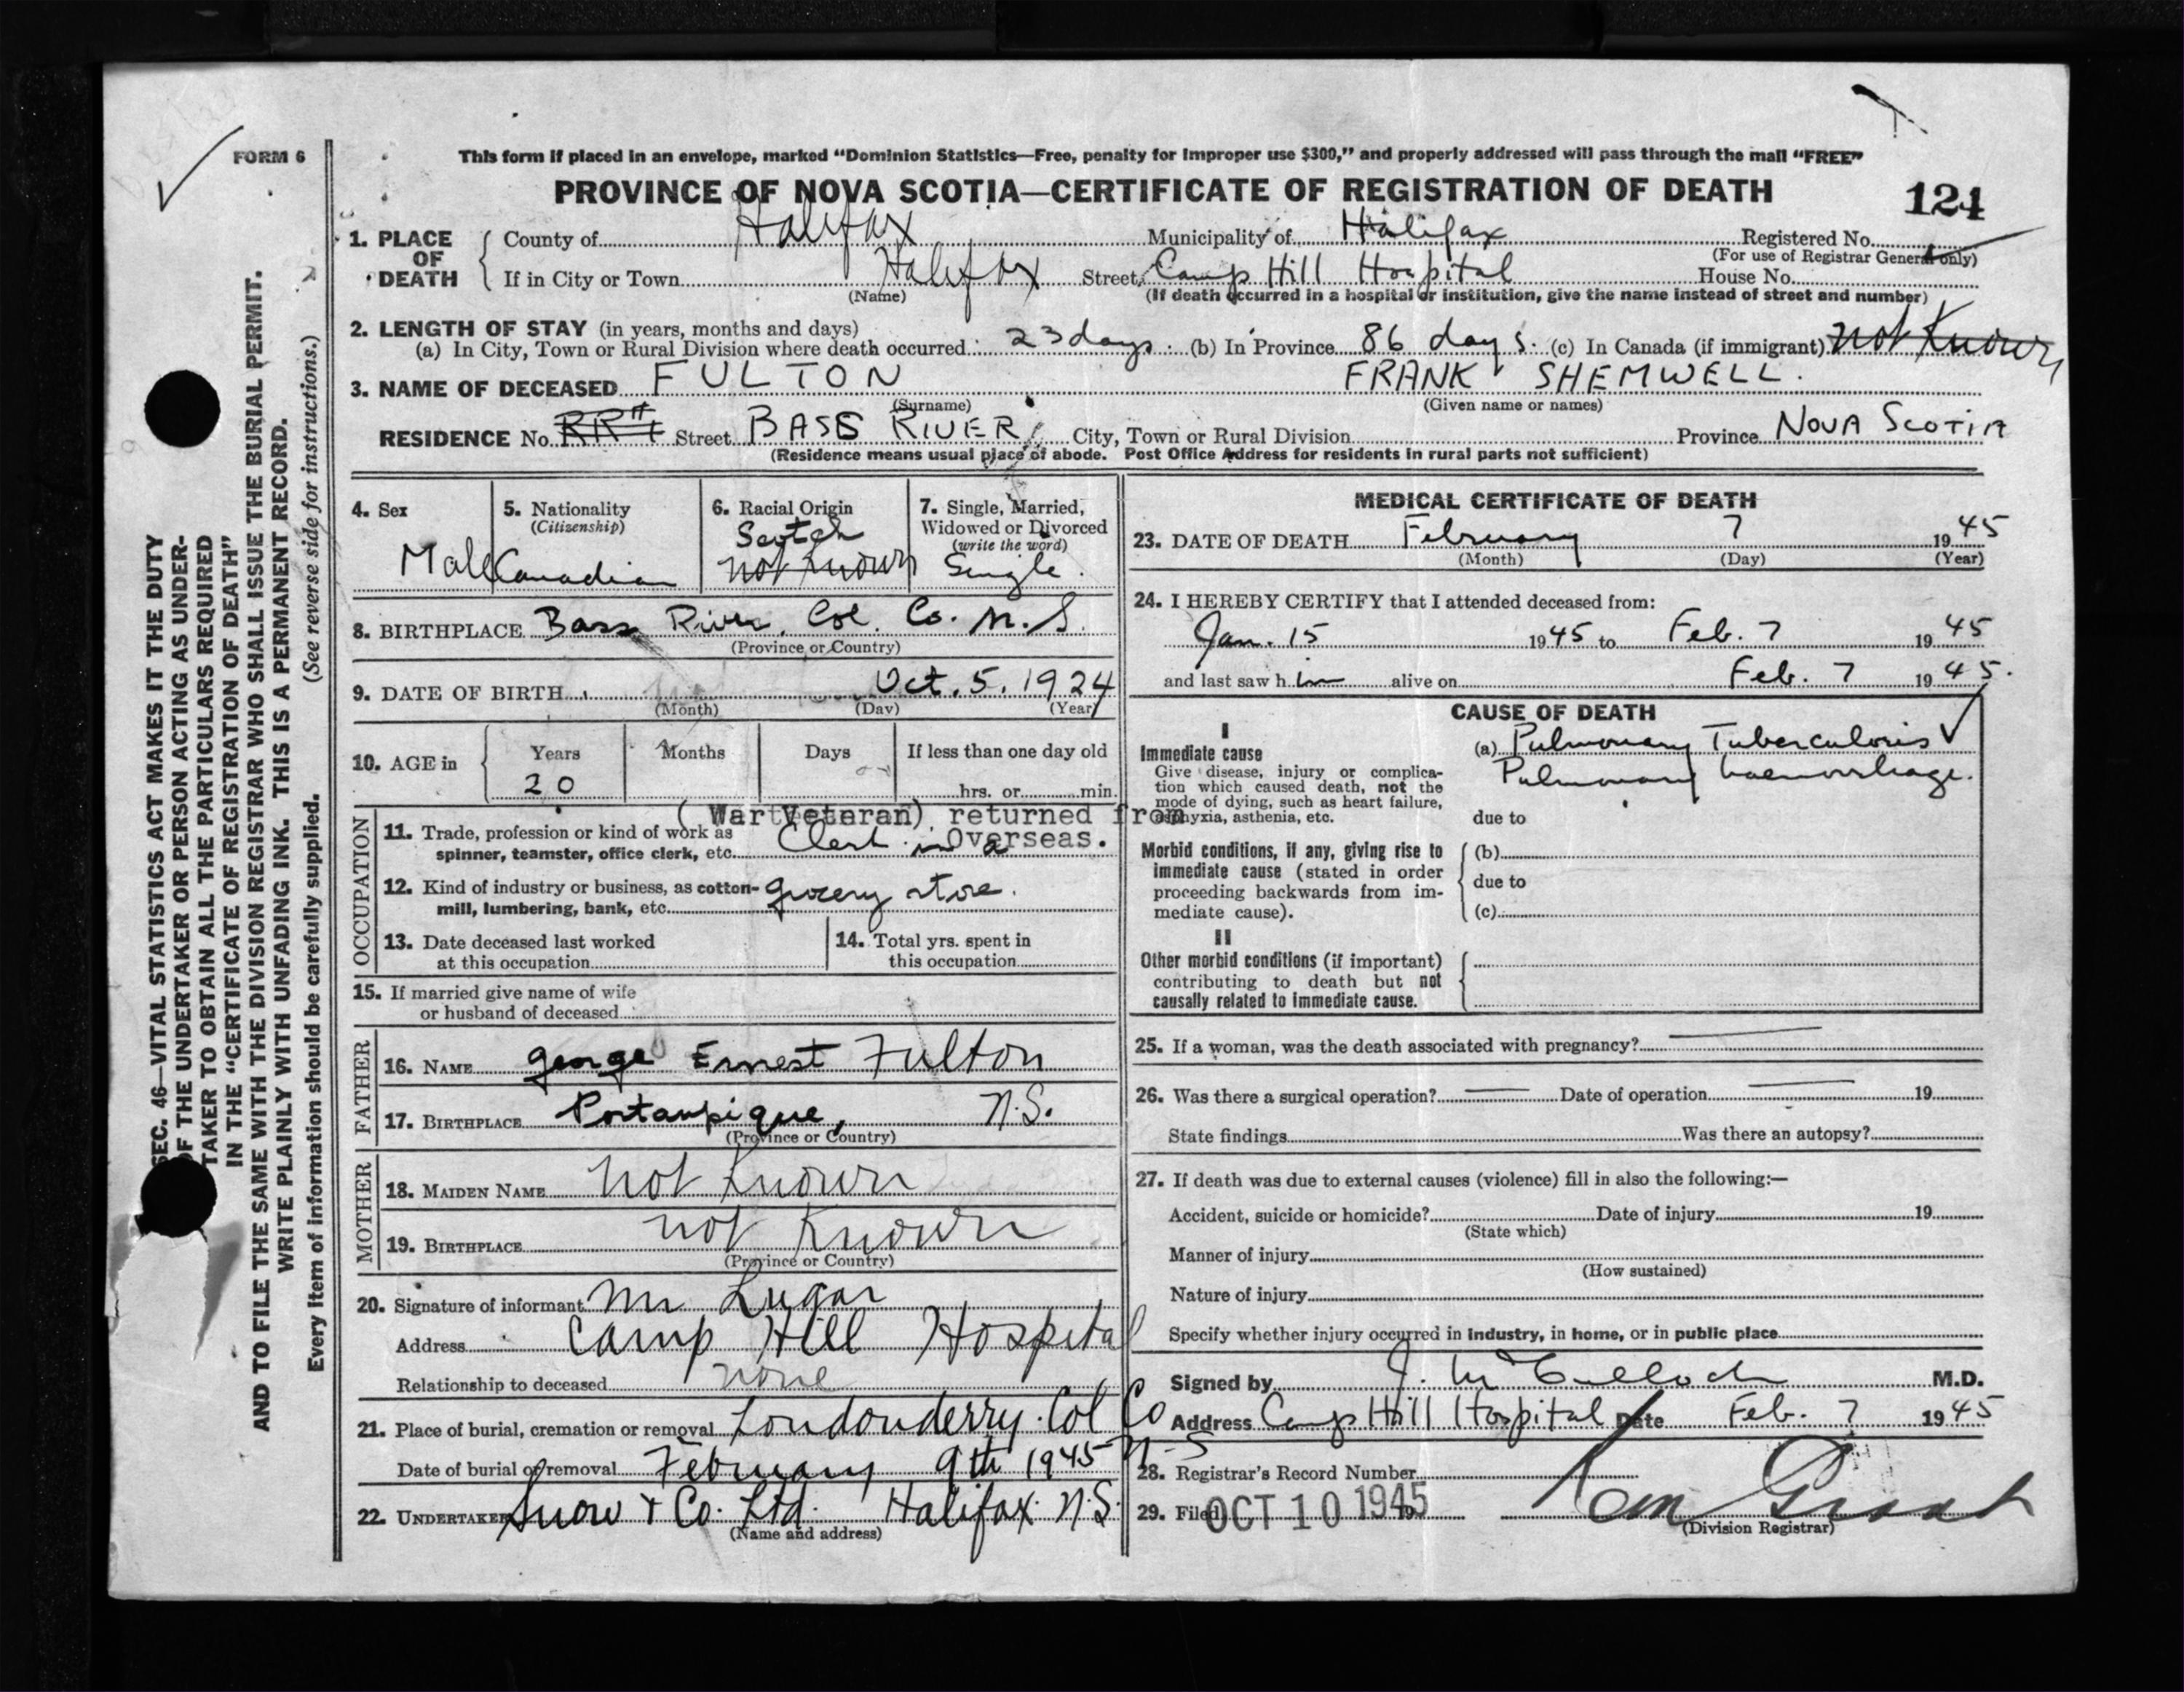 FORM 6
This form if placed in an envelope, marked “Dominion Statistics—Free, penalty for improper use $300,” and properly addressed will pass through the mail “FREE”
PROVINCE OF NOVA SCOTIA—CERTIFICATE OF REGISTRATION OF DEATH
124
1. PLACE OF DEATH County of Halifax Municipality of Halifax Registered No.
(For use of Registrar General only)
If in City or Town Halifax Street Camp Hill Hospital House No.
(Name) (If death occurred in a hospital or institution, give the name instead of street and number)
2. LENGTH OF STAY (in years, months and days)
(a) In City, Town or Rural Division where death occurred 23 days. (b) In Province 86 days. (c) In Canada (if immigrant) not Known
3. NAME OF DECEASED FULTON FRANK SHEMWELL.
(Surname) (Given name or names)
RESIDENCE No. RR#1 Street BASS RIVER City, Town or Rural Division Province NOVA SCOTIA
(Residence means usual place of abode. Post Office Address for residents in rural parts not sufficient)
4. Sex Male
5. Nationality (Citizenship) Canadian
6. Racial Origin Scotch not Known
7. Single, Married, Widowed or Divorced (write the word) Single.
8. BIRTHPLACE Bass River. Col. Co. N.S.
(Province or Country)
9. DATE OF BIRTH Oct. 5. 1924
(Month) (Day) (Year)
10. AGE in Years 20 Months Days If less than one day old
hrs. or min.
(War Veteran) returned from Overseas.
OCCUPATION
11. Trade, profession or kind of work as spinner, teamster, office clerk, etc. Clerk in a
12. Kind of industry or business, as cotton-mill, lumbering, bank, etc. grocery store.
13. Date deceased last worked at this occupation
14. Total yrs. spent in this occupation
15. If married give name of wife or husband of deceased
FATHER
16. NAME George Ernest Fulton
17. BIRTHPLACE Portaupique, N.S.
(Province or Country)
MOTHER
18. MAIDEN NAME not Known
19. BIRTHPLACE not Known
(Province or Country)
20. Signature of informant Mr Lugar
Address Camp Hill Hospital
Relationship to deceased none
21. Place of burial, cremation or removal Londonderry. Col Co N-S
Date of burial or removal February 9th 1945
22. UNDERTAKER Snow & Co. Ltd. Halifax. N.S.
(Name and address)
MEDICAL CERTIFICATE OF DEATH
23. DATE OF DEATH February 7 1945
(Month) (Day) (Year)
24. I HEREBY CERTIFY that I attended deceased from:
Jan. 15 1945 to Feb. 7 1945
and last saw him alive on Feb. 7 1945.
CAUSE OF DEATH
I
Immediate cause (a) Pulmonary Tuberculosis
Pulmonary haemorrhage.
Give disease, injury or complication which caused death, not the mode of dying, such as heart failure, asphyxia, asthenia, etc.
due to
Morbid conditions, if any, giving rise to immediate cause (stated in order proceeding backwards from immediate cause).
(b)
due to
(c)
II
Other morbid conditions (if important) contributing to death but not causally related to immediate cause.
25. If a woman, was the death associated with pregnancy?
26. Was there a surgical operation? Date of operation 19
State findings Was there an autopsy?
27. If death was due to external causes (violence) fill in also the following:—
Accident, suicide or homicide? Date of injury 19
(State which)
Manner of injury
(How sustained)
Nature of injury
Specify whether injury occurred in industry, in home, or in public place
Signed by J. McCulloch M.D.
Address Camp Hill Hospital Date Feb. 7 1945
28. Registrar's Record Number
29. Filed OCT 10 1945 19
(Division Registrar)
SEC. 46—VITAL STATISTICS ACT MAKES IT THE DUTY
OF THE UNDERTAKER OR PERSON ACTING AS UNDER-
TAKER TO OBTAIN ALL THE PARTICULARS REQUIRED
IN THE “CERTIFICATE OF REGISTRATION OF DEATH”
AND TO FILE THE SAME WITH THE DIVISION REGISTRAR WHO SHALL ISSUE THE BURIAL PERMIT.
WRITE PLAINLY WITH UNFADING INK. THIS IS A PERMANENT RECORD.
Every item of information should be carefully supplied. (See reverse side for instructions.)